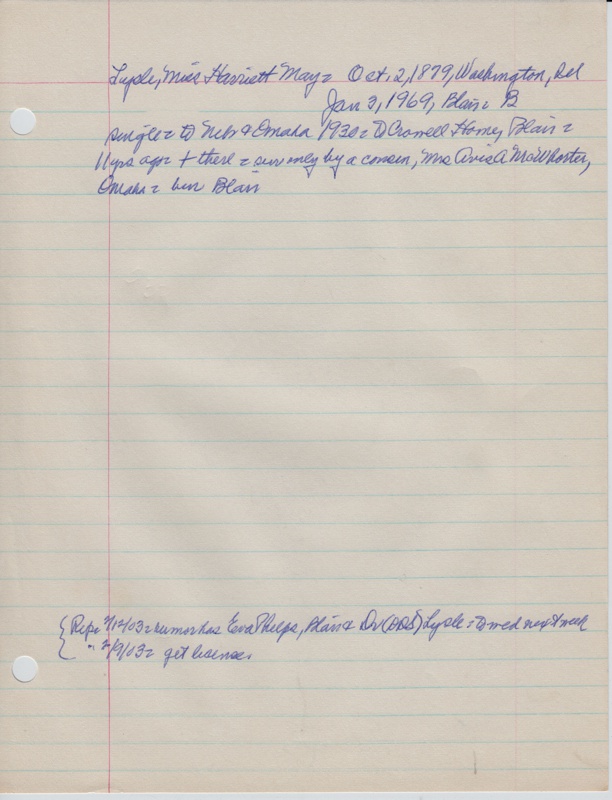 Lysle, Miss Harriett May = Oct. 2, 1879, Washington, Del
Jan 3, 1969, Blair = B
single = to Nebr & Omaha 1930 = to Crowell Home, Blair =
11 yrs ago + there = surv only by a cousin, Mrs Avis A McWhorter,
Omaha = bur Blair
{ Rep = /12/03 = rumor has Eva Phelps, Blair & Dr (DDS) Lysle = to wed next week
{ " = /9/03 = get license.